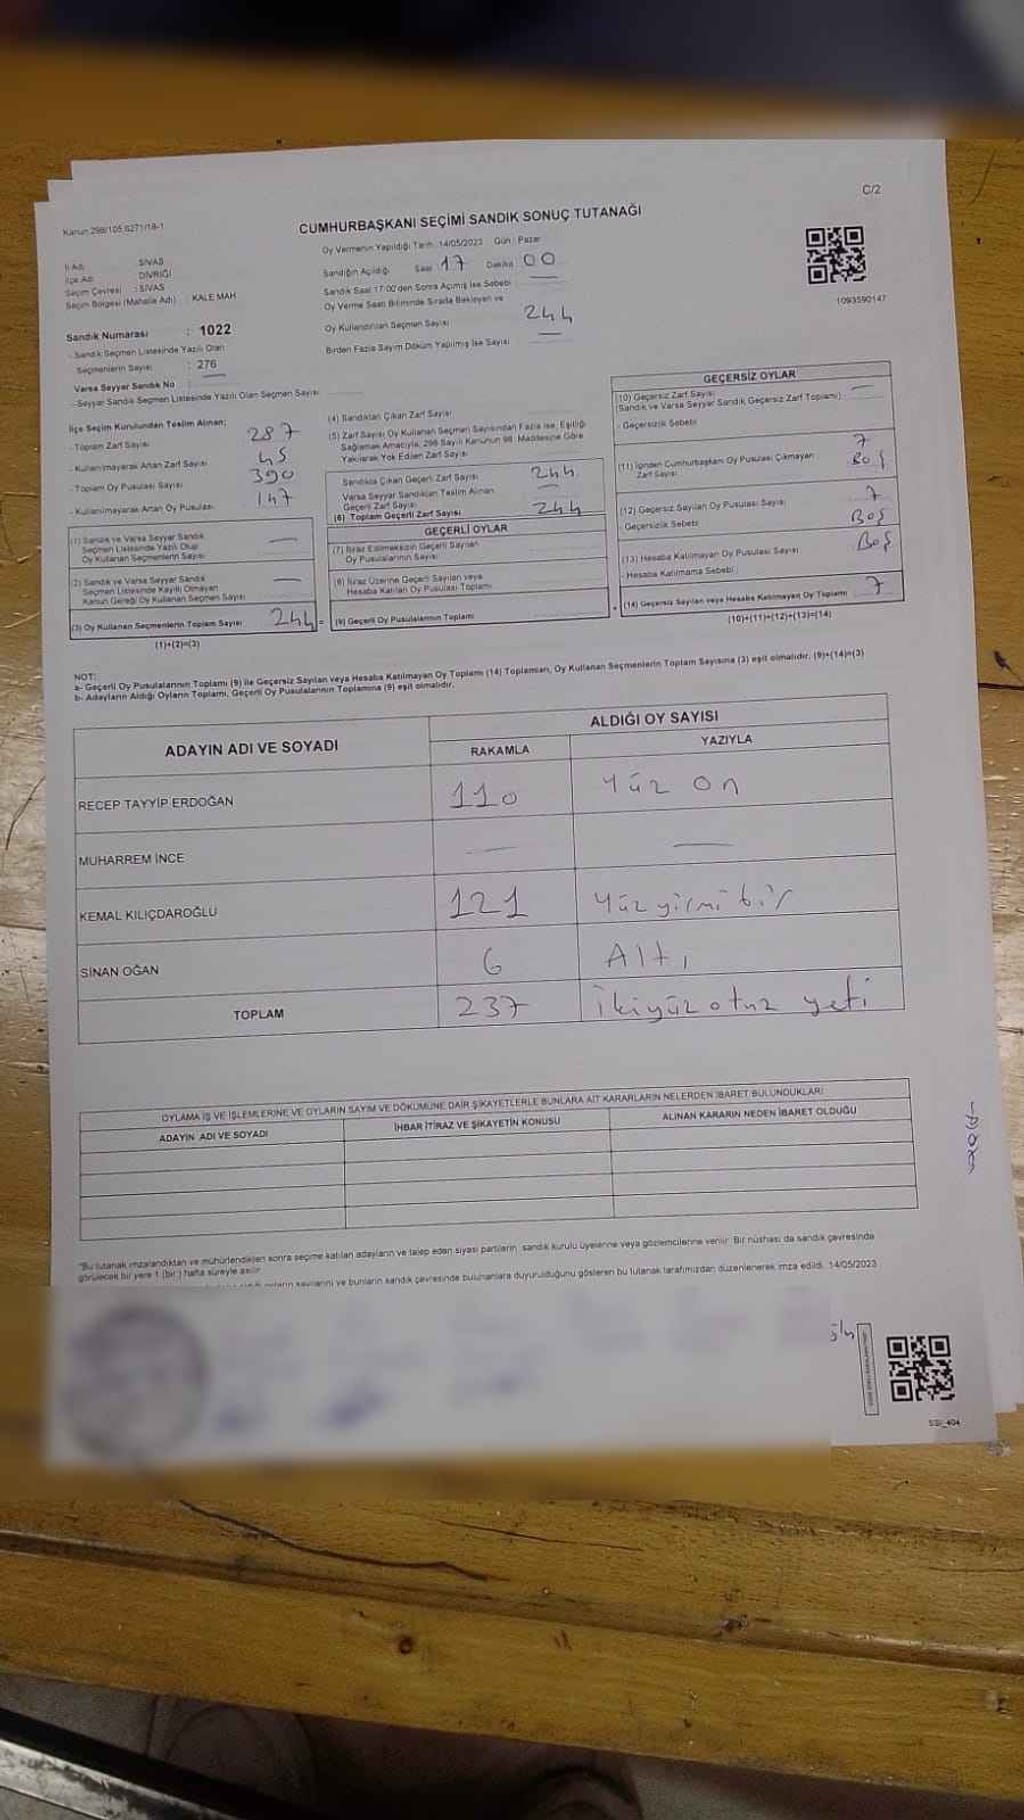 C/2
Kanun 298/105,6271/18-1
CUMHURBAŞKANI SEÇİMİ SANDIK SONUÇ TUTANAĞI
Oy Vermenin Yapıldığı Tarih: 14/05/2023 Gün: Pazar
İl Adı : SİVAS
İlçe Adı : DİVRİĞİ
Seçim Çevresi : SİVAS
Seçim Bölgesi (Mahalle Adı) : KALE MAH
Sandığın Açıldığı Saat 17 Dakika 00
Sandık Saat 17:00'den Sonra Açılmış İse Sebebi
Oy Verme Saati Bitiminde Sırada Bekleyen ve
Oy Kullandırılan Seçmen Sayısı
244
Birden Fazla Sayım Döküm Yapılmış İse Sayısı
1093590147
Sandık Numarası : 1022
- Sandık Seçmen Listesinde Yazılı Olan
Seçmenlerin Sayısı : 276
Varsa Seyyar Sandık No
- Seyyar Sandık Seçmen Listesinde Yazılı Olan Seçmen Sayısı
İlçe Seçim Kurulundan Teslim Alınan;
- Toplam Zarf Sayısı 287
- Kullanılmayarak Artan Zarf Sayısı 45
- Toplam Oy Pusulası Sayısı 390
- Kullanılmayarak Artan Oy Pusulası 147
(1) Sandık ve Varsa Seyyar Sandık
Seçmen Listesinde Yazılı Olup
Oy Kullanan Seçmenlerin Sayısı —
(2) Sandık ve Varsa Seyyar Sandık
Seçmen Listesinde Kayıtlı Olmayan
Kanun Gereği Oy Kullanan Seçmen Sayısı —
(3) Oy Kullanan Seçmenlerin Toplam Sayısı 244 =
(1)+(2)=(3)
(4) Sandıktan Çıkan Zarf Sayısı
(5) Zarf Sayısı Oy Kullanan Seçmen Sayısından Fazla ise, Eşitliği
Sağlamak Amacıyla, 298 Sayılı Kanunun 98. Maddesine Göre
Yakılarak Yok Edilen Zarf Sayısı
Sandıkta Çıkan Geçerli Zarf Sayısı 244
Varsa Seyyar Sandıktan Teslim Alınan
Geçerli Zarf Sayısı —
(6) Toplam Geçerli Zarf Sayısı 244
GEÇERLİ OYLAR
(7) İtiraz Edilmeksizin Geçerli Sayılan
Oy Pusulalarının Sayısı
(8) İtiraz Üzerine Geçerli Sayılan veya
Hesaba Katılan Oy Pusulası Toplamı
(9) Geçerli Oy Pusulalarının Toplamı +
GEÇERSİZ OYLAR
(10) Geçersiz Zarf Sayısı
(Sandık ve Varsa Seyyar Sandık Geçersiz Zarf Toplamı) —
- Geçersizlik Sebebi
7
(11) İçinden Cumhurbaşkanı Oy Pusulası Çıkmayan
Zarf Sayısı Boş
(12) Geçersiz Sayılan Oy Pusulası Sayısı 7
- Geçersizlik Sebebi Boş
(13) Hesaba Katılmayan Oy Pusulası Sayısı Boş
- Hesaba Katılmama Sebebi
(14) Geçersiz Sayılan veya Hesaba Katılmayan Oy Toplamı 7
(10)+(11)+(12)+(13)=(14)
NOT:
a- Geçerli Oy Pusulalarının Toplamı (9) ile Geçersiz Sayılan veya Hesaba Katılmayan Oy Toplamı (14) Toplamları, Oy Kullanan Seçmenlerin Toplam Sayısına (3) eşit olmalıdır. (9)+(14)=(3)
b- Adayların Aldığı Oyların Toplamı, Geçerli Oy Pusulalarının Toplamına (9) eşit olmalıdır.
ADAYIN ADI VE SOYADI
ALDIĞI OY SAYISI
RAKAMLA YAZIYLA
RECEP TAYYİP ERDOĞAN 110 Yüz on
MUHARREM İNCE — —
KEMAL KILIÇDAROĞLU 121 Yüz yirmi bir
SİNAN OĞAN 6 Altı
TOPLAM 237 İkiyüz otuz yeti
OYLAMA İŞ VE İŞLEMLERİNE VE OYLARIN SAYIM VE DÖKÜMÜNE DAİR ŞİKAYETLERLE BUNLARA AİT KARARLARIN NELERDEN İBARET BULUNDUKLARI
ADAYIN ADI VE SOYADI İHBAR İTİRAZ VE ŞİKAYETİN KONUSU ALINAN KARARIN NEDEN İBARET OLDUĞU
"Bu tutanak imzalandıktan ve mühürlendikten sonra seçime katılan adayların ve talep eden siyasi partilerin sandık kurulu üyelerine veya gözlemcilerine verilir. Bir nüshası da sandık çevresinde
görülecek bir yere 1 (bir) hafta süreyle asılır.
oyların sayılarını ve bunların sandık çevresinde bulunanlara duyurulduğunu gösteren bu tutanak tarafımızdan düzenlenerek imza edildi. 14/05/2023
SSI_404